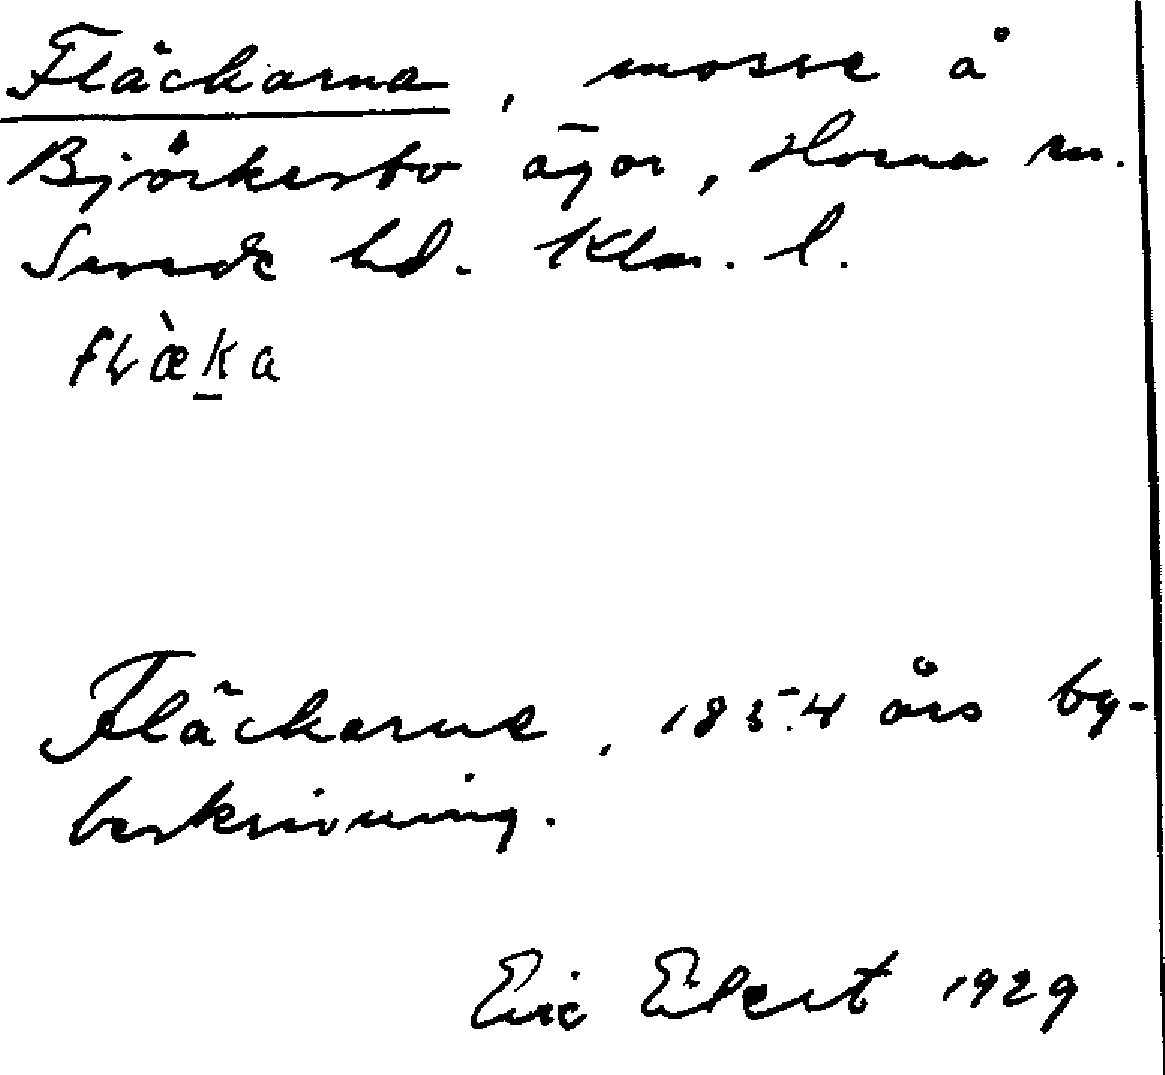 Fläckarna, mosse å
Björkesbo ägor, Hvena sn.
Sevede hd. Klm. l.
fɬæ̀k̲a
Fläckarne, 1854 års by-
beskrivning.
Eric 1929